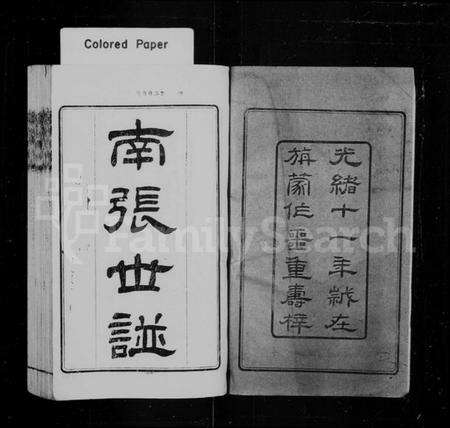 Colored Paper
南張世譜
光緒十一年歲在
旃蒙作噩重壽梓
FamilySearch